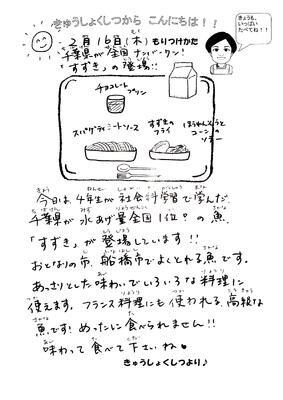 きゅうしょくしつから こんにちは!!
きょうも、
いっぱい
たべてね!!
2月16日(木) もりつけかた
千葉県が全国ナンバーワン!
「すずき」の登場!!
チョコレート
プリン
スパゲティミートソース
すずきの
フライ
ほうれんそうと
コーンの
ソテー
今日は、4年生が社会科学習で学んだ、
千葉県が水あげ量全国1位?の魚
「すずき」が登場しています!!
おとなりの市、船橋市でよくとれる魚です。
あっさりとした味わいでいろいろな料理に
使えます。フランス料理にも使われる、高級な
魚です!めったに食べられません!!
味わって食べて下さいね♥
きゅうしょくしつより♪